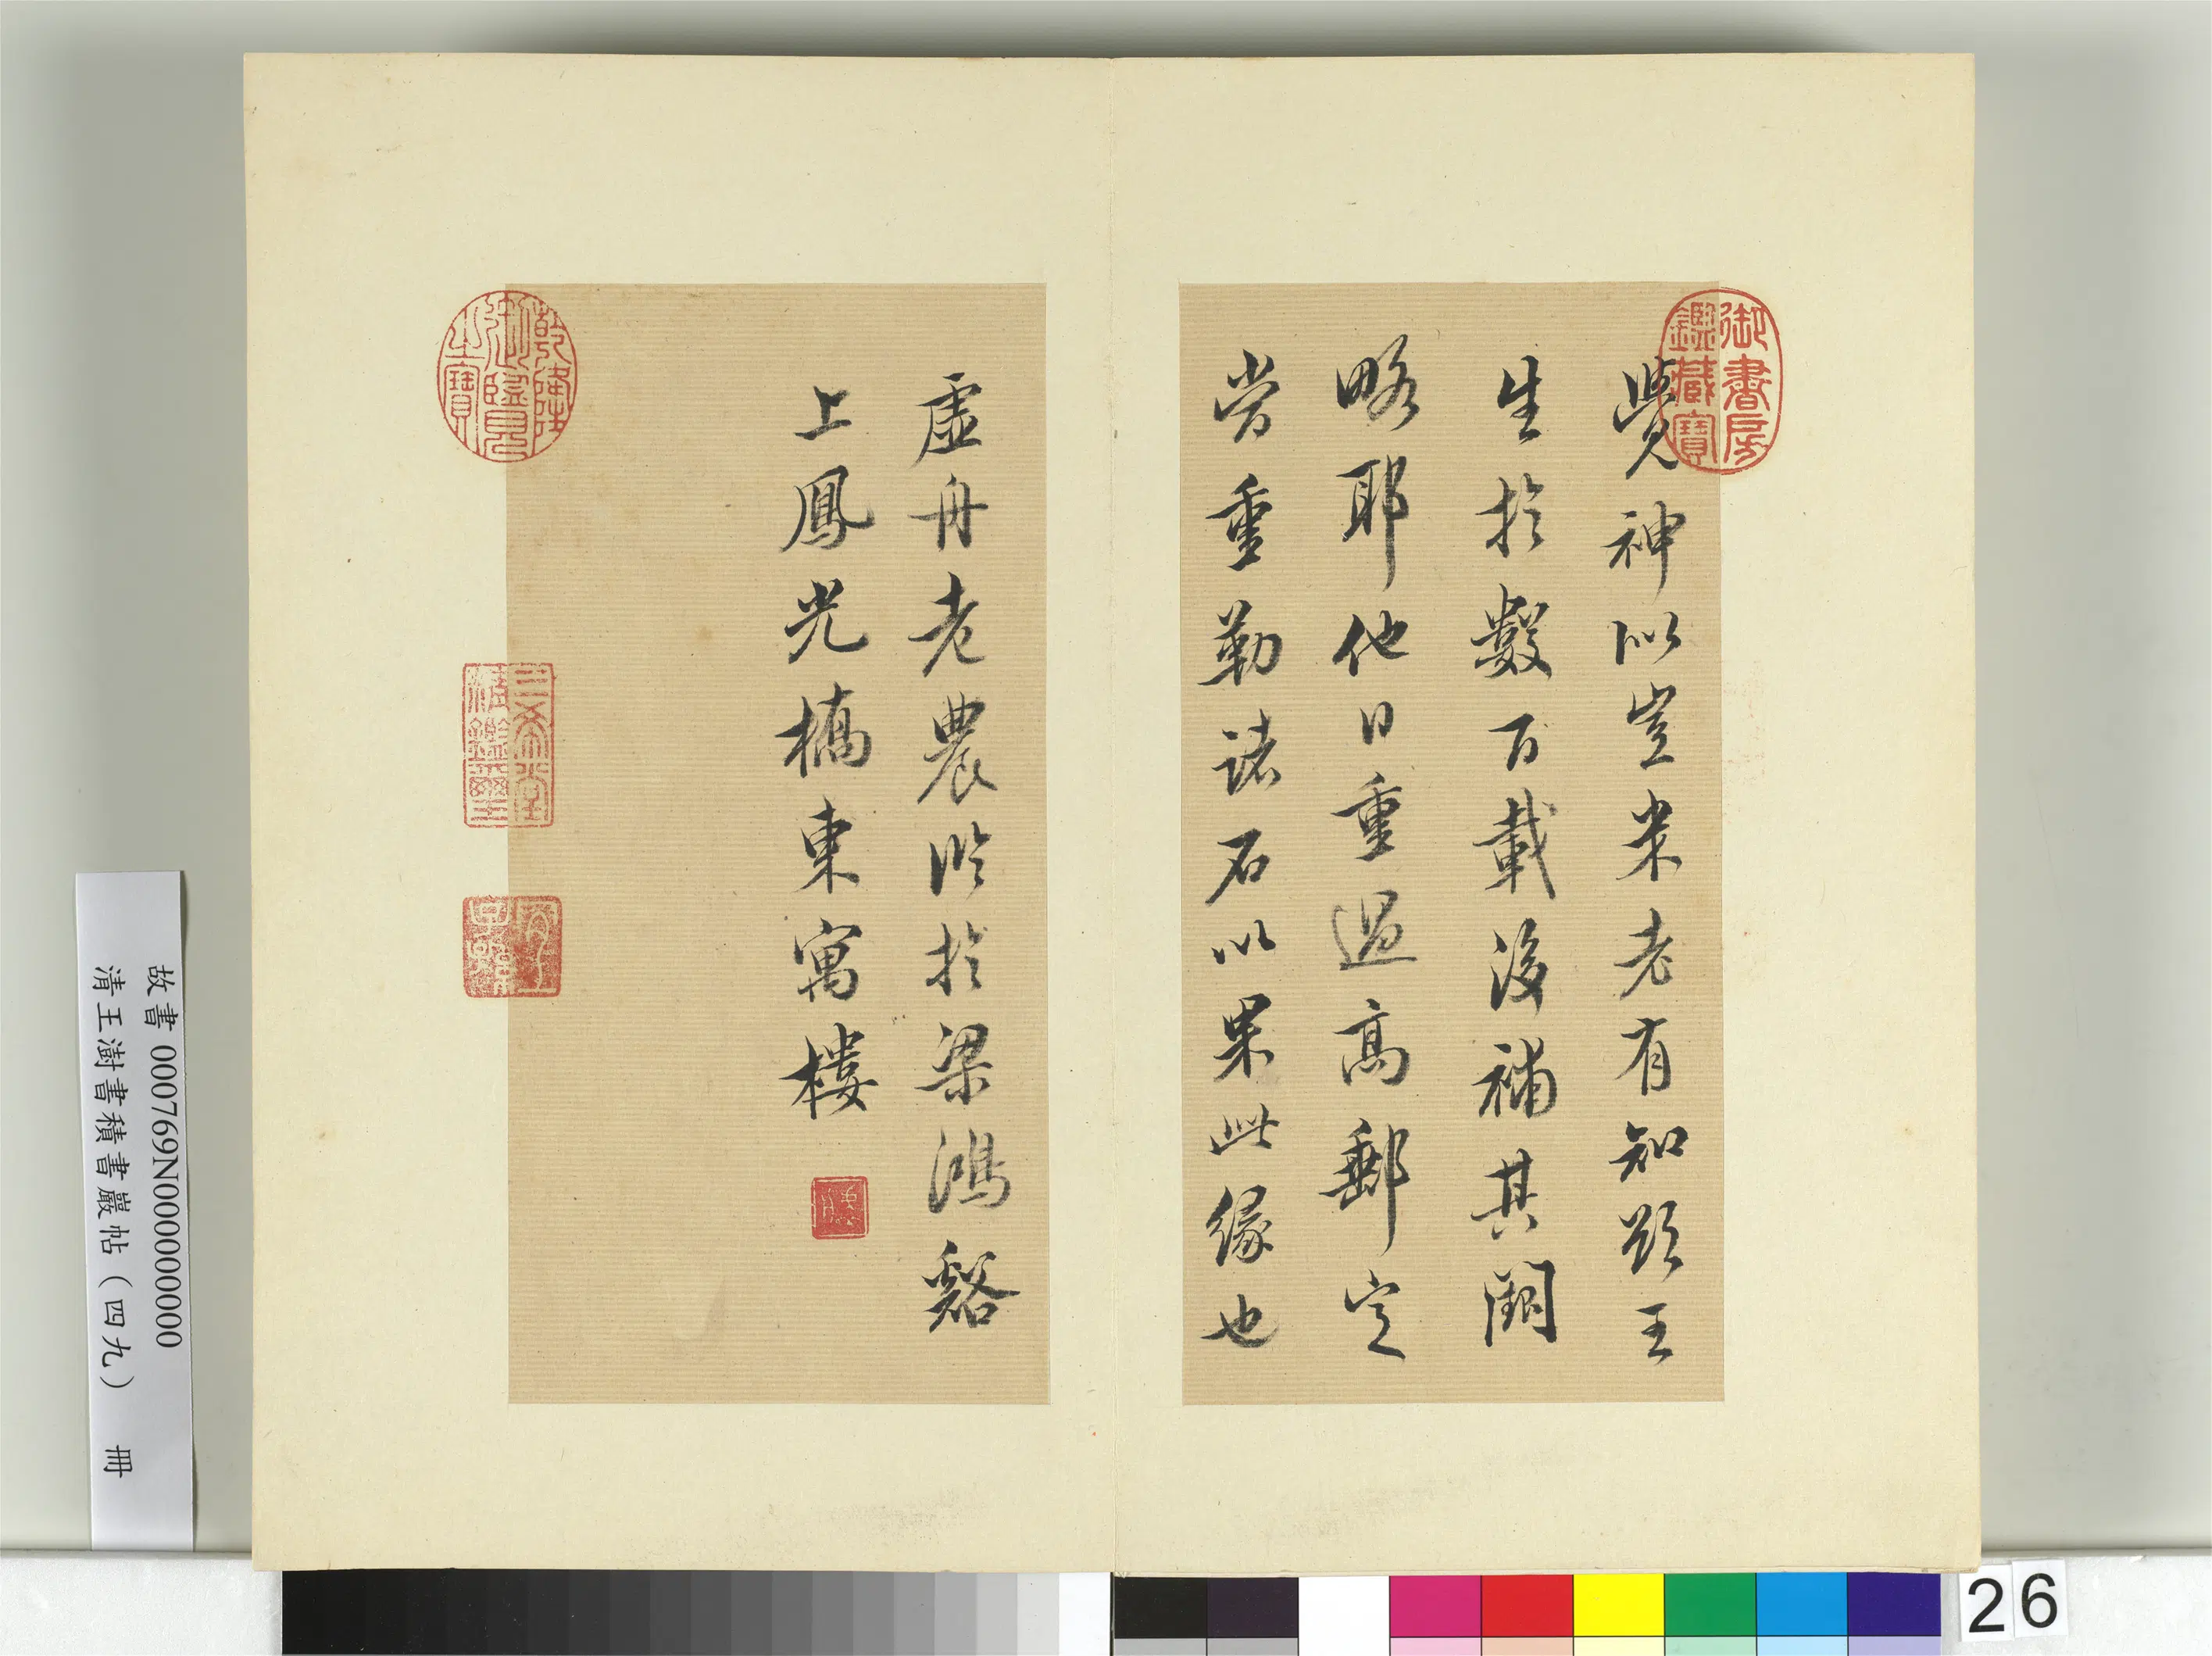 覺神似豈米老有知歘王
生於數百載後補其闕
略耶他日重過高郵定
當重勒諸石以果此緣也
虛舟老農臨於梁鴻谿
上鳳光橋東寓樓
御書房鑑藏寶
乾隆御覽之寶
三希堂精鑑璽
宜子孫
故書 000769N000000000
清王澍書積書巖帖(四九) 冊
26